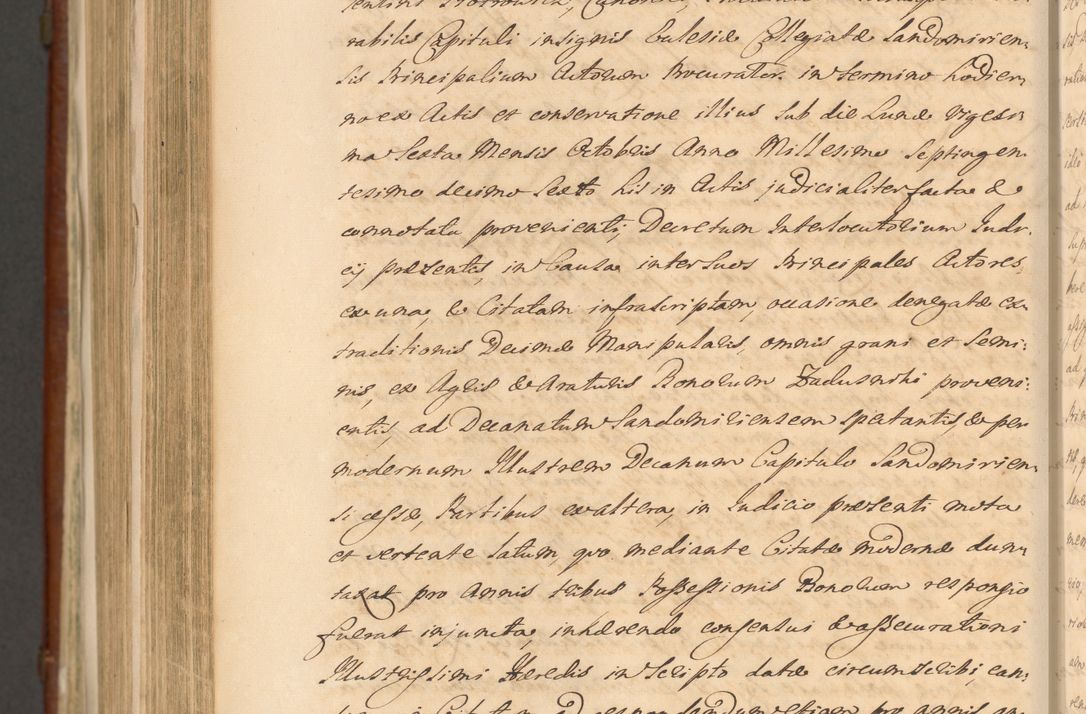 rabilis Capituli insignis Ecclesiæ Collegiatæ Sandomirien:
sis Principalium Actorum Procurator. in termino hodier
no ex Actis et conservatione illius sub die Lunæ Vigesi
ma Sexta Mensis Octobris Anno Millesimo Septingen
tesimo decimo Sexto his in Actis judicialiter facta &
connotata provenienti, Decretum Interlocutorium Judi
cij præsentis, in Causa inter suos Principales Actores
ex una, & Citatam infrascriptam, occasione denegatæ ex
traditionis Decimæ Manipularis, omnis grani et Semi:
nis, ex Agris & Araturis Bonorum proveni:
entis, ad Decanatum Sandomiriensem spetantis, & per
modernum Illustrem Decanum Capitulo Sandomirien:
si cessæ, Partibus ex altera, in Judicio præsenti mota
et vertente latum, quo mediante Citatæ modernæ dun:
taxat pro Annis tribus Possessionis Bonorum responsio
fuerat injuncta, inhærendo consensui & assecurationi
Illustrissimi Hæredis in Scripto datæ circumscribi, can: